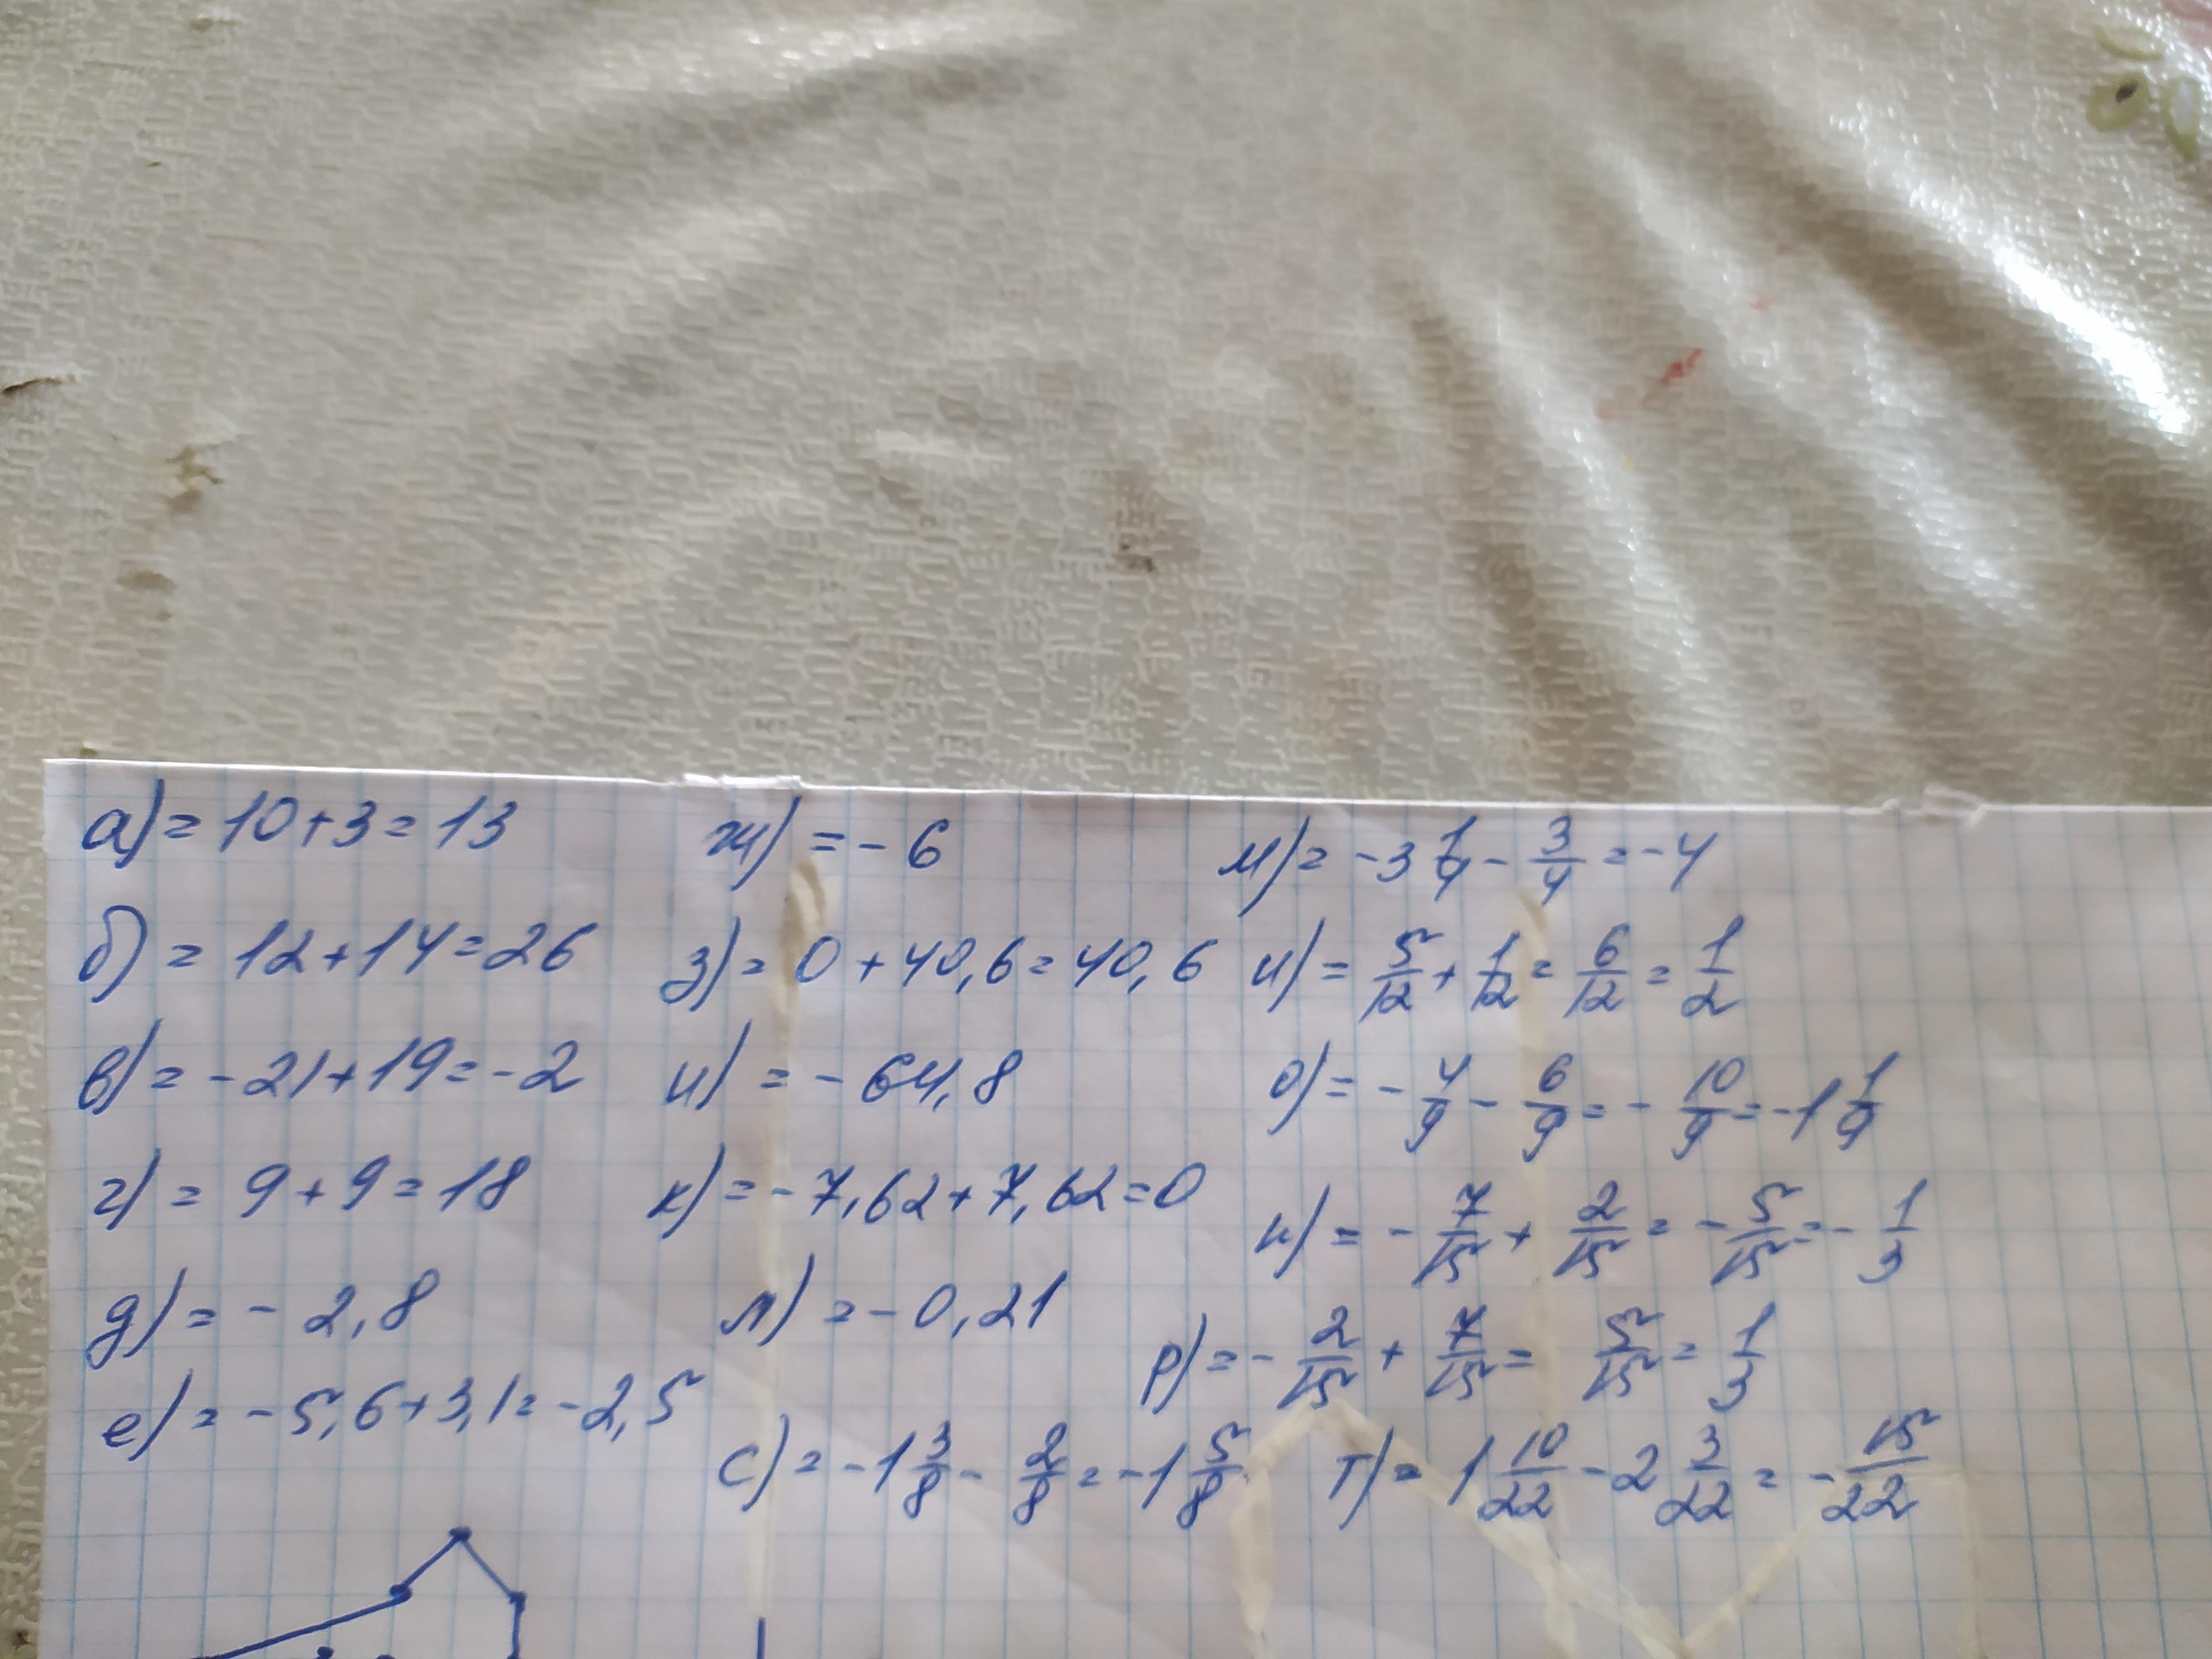 а) = 10+3 = 13
б) = 12+14 = 26
в) = -21+19 = -2
г) = 9+9 = 18
д) = - 2,8
е) = -5,6+3,1 = -2,5
ж) = - 6
з) = 0+40,6 = 40,6
и) = - 64,8
к) = -7,62+7,62 = 0
л) = -0,21
с) = -1 3/8 - 2/8 = -1 5/8
м) = -3 1/4 - 3/4 = -4
н) = 5/12 + 1/12 = 6/12 = 1/2
о) = - 4/9 - 6/9 = - 10/9 = -1 1/9
н) = - 7/15 + 2/15 = - 5/15 = - 1/3
р) = - 2/15 + 7/15 = 5/15 = 1/3
т) = 1 10/22 - 2 3/22 = - 15/22